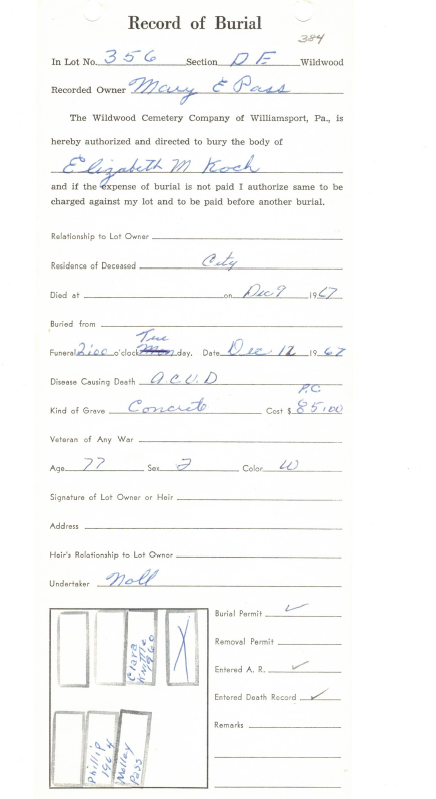 Record of Burial
384
In Lot No. 356 Section D E Wildwood
Recorded Owner Mary E Pass
The Wildwood Cemetery Company of Williamsport, Pa., is
hereby authorized and directed to bury the body of
Elizabeth M Koch
and if the expense of burial is not paid I authorize same to be
charged against my lot and to be paid before another burial.
Relationship to Lot Owner
Residence of Deceased City
Died at on Dec 9 1967
Buried from
Tue
Funeral 2:00 o'clock Mon day, Date Dec 12 1967
Disease Causing Death A.C.V.D
P.C
Kind of Grave Concrete Cost $ 85.00
Veteran of Any War
Age 77 Sex F Color W
Signature of Lot Owner or Heir
Address
Heir's Relationship to Lot Owner
Undertaker Noll
Burial Permit ✓
Removal Permit
Entered A. R. ✓
Entered Death Record ✓
Remarks
Clara
Knittle
1960
X
Phillip
1964
Molley
Pass